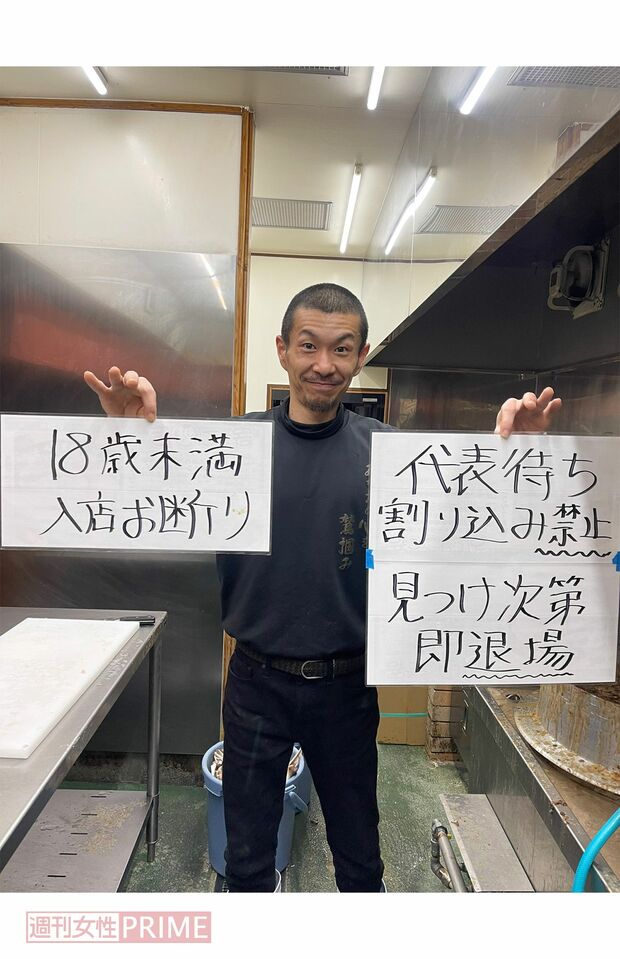 18歳未満
入店お断り
代表待ち
割り込み禁止
見つけ次第
即退場
鷲掴み
週刊女性PRIME